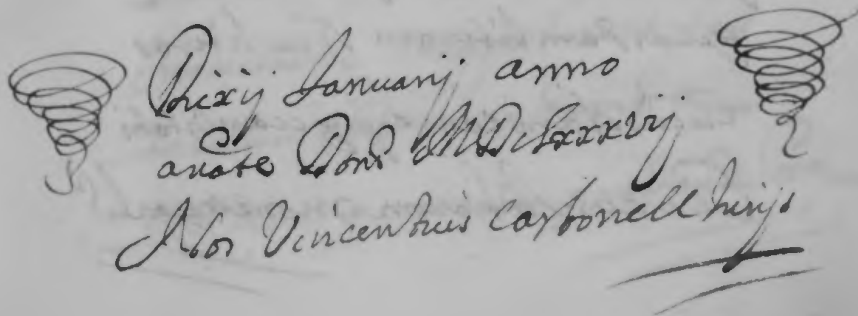 Die xij Januarij anno
anate Domi MDClxxxvij
Nos Vincentius Carbonell